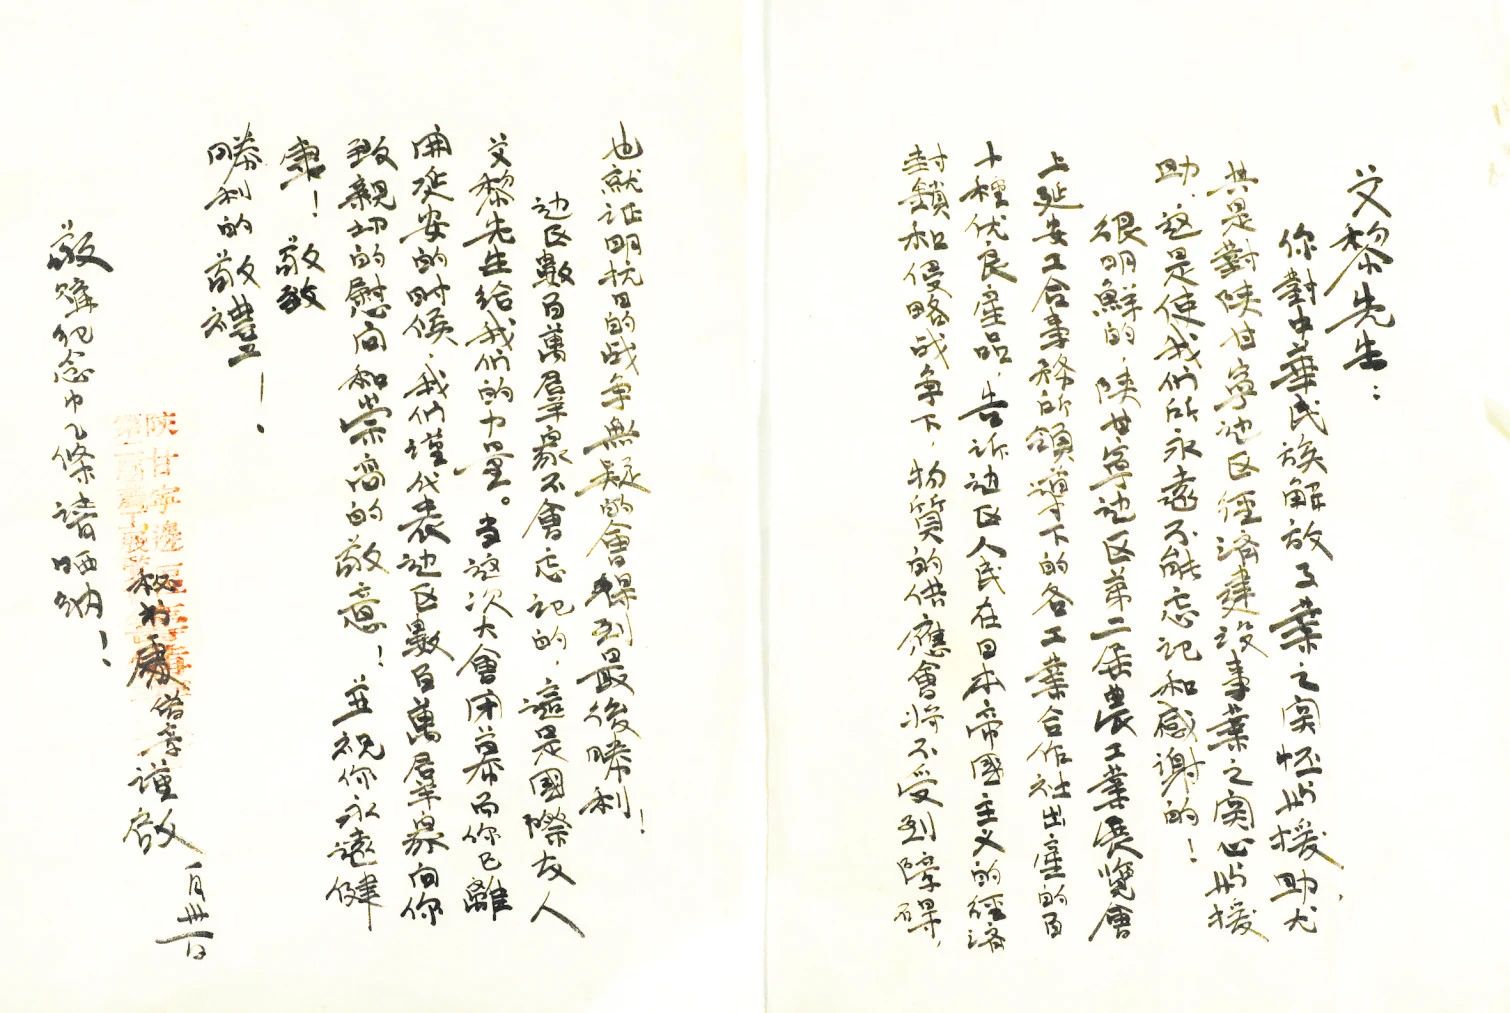 艾黎先生：
你對中華民族解放事業之関怀与援助尤
其是對陕甘寧边区經済建设事業之関心与援
助，这是使我们所永遠不能忘记和感謝的！
很明鮮的，陕甘寧边区第二届農工業展覽會
上延安工合事務所領導下的各工業合作社出産的百
十種优良産品，告诉边区人民在日本帝國主义的經済
封鎖和侵略战争下，物質的供應會将不受到障碍，
也就证明抗日的战争無疑的會得到最後勝利！
边区數百萬群衆不會忘记的，這是國際友人
艾黎先生给我们的力量。当这次大會開幕而你已離
開延安的时候，我们谨代表边区數百萬群衆向你
致親切的慰问和崇高的敬意！並祝你永遠健
康！敬致
勝利的敬禮！
陕甘寧邊區
第二屆農工展
秘书處 谨啟
一月卅一日
敬贈纪念巾几條请哂纳！